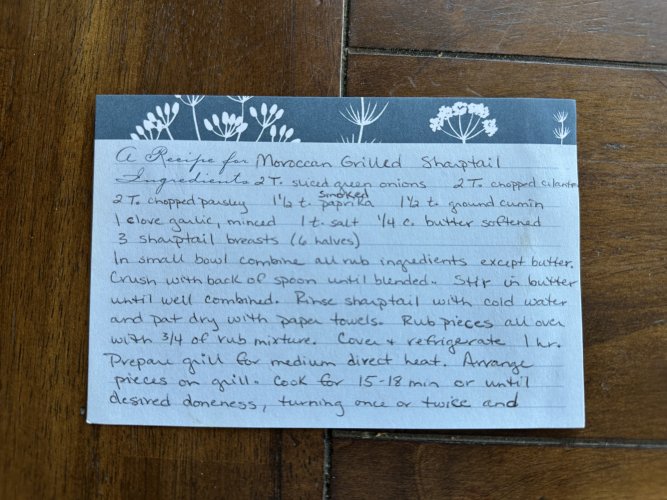 A Recipe for Moroccan Grilled Sharptail
Ingredients 2 T. sliced green onions 2 T. chopped cilantro
smoked
2 T. chopped parsley 1 1/2 t. paprika 1 1/2 t. ground cumin
1 clove garlic, minced 1 t. salt 1/4 c. butter softened
3 sharptail breasts (6 halves)
In small bowl combine all rub ingredients except butter.
Crush with back of spoon until blended. Stir in butter
until well combined. Rinse sharptail with cold water
and pat dry with paper towels. Rub pieces all over
with 3/4 of rub mixture. Cover + refrigerate 1 hr.
Prepare grill for medium direct heat. Arrange
pieces on grill. Cook for 15-18 min or until
desired doneness, turning once or twice and